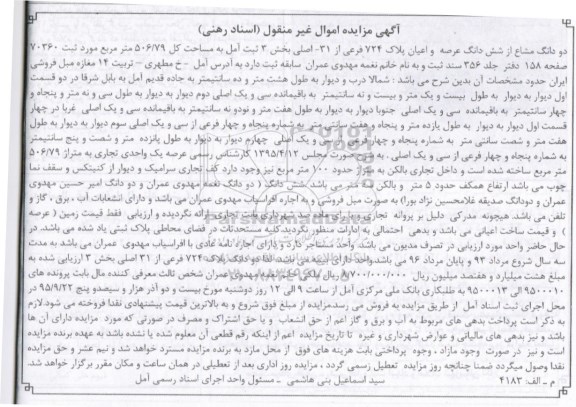 آگهی مزایده اموال غیر منقول (اسناد رهنی)
دو دانگ مشاع از شش دانگ عرصه و اعیان پلاک ۷۲۴ فرعی از ۳۱- اصلی بخش ۳ ثبت آمل به مساحت کل ۵۰۶/۷۹ متر مربع مورد ثبت ۷۰۳۶۰
صفحه ۱۵۸ دفتر جلد ۳۵۶ سند ثبت و به نام خانم نغمه مهدوی عمران سابقه ثبت دارد به آدرس آمل - خ مطهری - تربیت ۱۴ مغازه مبل فروشی
ایران حدود مشخصات آن بدین شرح می باشد : شمالا درب و دیوار به طول هشت متر و ده سانتیمتر به جاده قدیم آمل به بابل شرقا در دو قسمت
اول دیوار به دیوار به طول بیست و یک متر و بیست و نه سانتیمتر به باقیمانده سی و یک اصلی دوم دیوار به دیوار به طول سی و نه متر و پنجاه و
چهار سانتیمتر به باقیمانده سی و یک اصلی جنوبا دیوار به دیوار به طول هفت متر و نودو نه سانتیمتر به باقیمانده سی و یک اصلی غربا در چهار
قسمت اول دیوار به دیوار به طول یازده متر و پنجاه و هفت سانتی متر به شماره پنجاه و چهار فرعی از سی و یک اصلی سوم دیوار به دیوار به طول
هفت متر و شصت سانتی متر به شماره پنجاه و چهار فرعی از سی و یک اصلی چهارم دیوار به دیوار به طول پانزده متر و شصت و پنج سانتیمتر
به شماره پنجاه و چهار فرعی از سی و یک اصلی . به صورت مجلس ۱۳۹۵/۴/۱۲ کارشناس رسمی عرصه یک واحدی تجاری به متراژ ۵۰۶/۷۹
متر مربع ساخته شده است و داخل تجاری بالکن به متراژ حدود ۱۰۰ متر مربع نیز وجود دارد کف تجاری سرامیک و دیوار از کنیتکس و سقف نما
چوب می باشد ارتفاع همکف حدود ۵ متر و بالکن متر می باشد شش دانگ ( دو دانگ نغمه مهدوی عمران و دو دانگ امیر حسین مهدوی
عمران و دودانگ صدیقه غلامحسین نژاد بورا) به صورت مبل فروشی و به اجاره افراسیاب مهدوی عمران می باشد و دارای انشعابات آب ، برق ، گاز و
تلفن می باشد. هیچونه مدرکی دلیل بر پروانه تجاری و یا رای ماده صد شهرداری بابت تجاری ارائه نگردیده و ارزیابی فقط قیمت زمین ( عرصه
) و قیمت ساخت اعیانی می باشد و بدهی احتمالی به ادارات منظور نگردید.کلیه مستحدثات در فضای محاطی پلاک ثبتی یاد شده می باشد. در
حال حاضر واحد مورد ارزیابی در تصرف مدیون می باشد واحد مستاجر دارد و دارای اجاره نامه عادی با افراسیاب مهدوی عمران می باشد به مدت
سه سال شروع مرداد ۹۳ و پایان مرداد ۹۶ می باشد.واحد دارای بیمه می باشد لذا دو دانگ پلاک ۷۲۴ فرعی از ۳۱ اصلی بخش ۳ ارزیابی شده به
مبلغ هشت میلیارد و هفتصد میلیون ریال ۸/۷۰۰/۰۰۰/۰۰۰ ریال ملکی خانم نغمه مهدوی عمران شخص ثالث معرفی کننده مال بابت پرونده های
۹۵۰۰۰۱۰ الی ۹۵۰۰۰۱۳ به طلبکاری بانک ملی مرکزی آمل از ساعت ۹ الی ۱۲ روز دوشنبه مورخ بیست و دو آذر هزار و سیصدو پنج ۹۵/۹/۲۲ در
محل اجرای ثبت اسناد آمل از طریق مزایده به فروش می رسد.مزایده از مبلغ فوق شروع و به بالاترین قیمت پیشنهادی نقدا فروخته می شود.لازم
به ذکر است پرداخت بدهی های مربوط به آب و برق و گاز اعم از حق انشعاب و یا حق اشتراک و مصرف در صورتی که مورد مزایده دارای آن ها
باشد و نیز بدهی های مالیاتی و عوارض شهرداری و غیره تا تاریخ مزایده اعم از اینکه رقم قطعی آن معلوم شده یا نشده باشد به عهده برنده مزایده
است و نیز در صورت وجود مازاد ، وجوه پرداختی بابت هزینه های فوق از محل مازاد به برنده مزایده مسترد خواهد شد و نیم عشر و حق مزایده
نقدا وصول میگردد ضمنا چنانچه روز مزایده تعطیل رسمی گردد ، مزایده روز اداری بعد از تعطیلی در همان ساعت و مکان مقرر برگزار خواهد شد.
م - الف: ۴۱۸۳ سید اسماعیل بنی هاشمی - مسئول واحد اجرای اسناد رسمی آمل